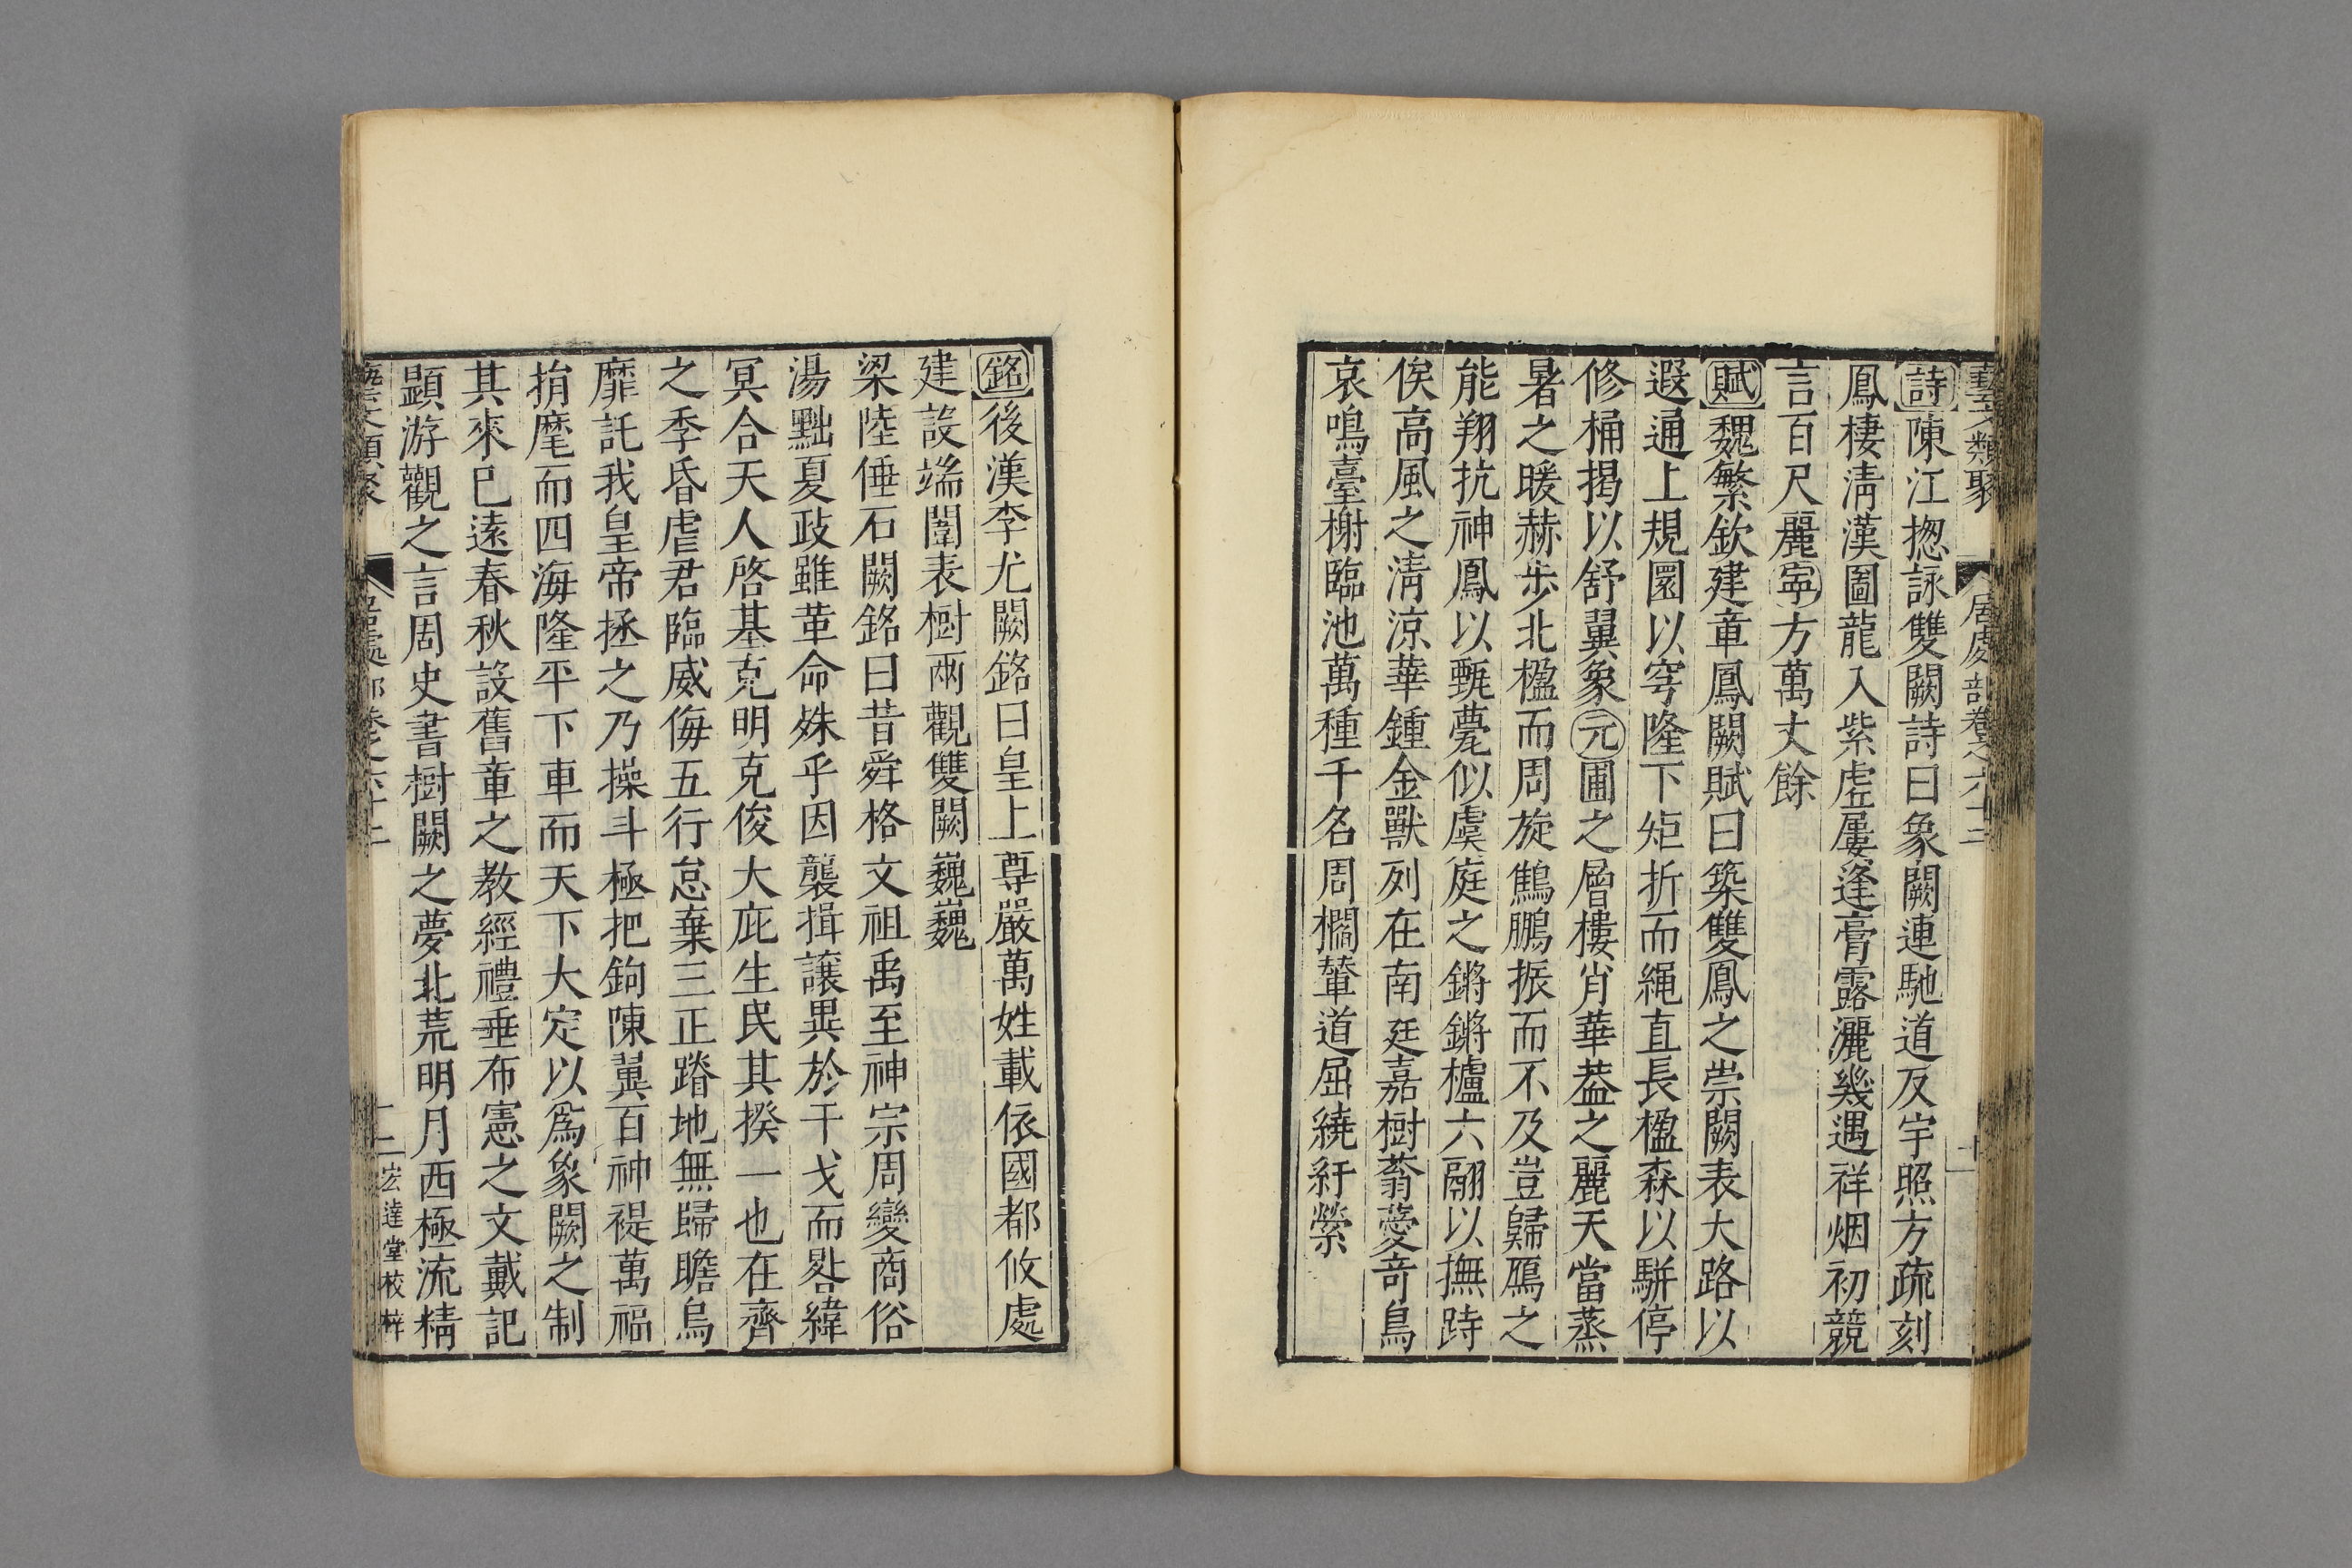 藝文類聚 居處部卷之六十二 十一
詩陳江揔詠雙闕詩曰象闕連馳道反宇照方疏刻
鳳棲淸漢圖龍入紫虛屢逢膏露灑幾遇祥烟初競
言百尺麗寜方萬丈餘
賦魏繁欽建章鳳闕賦曰築雙鳳之崇闕表大路以
遐通上規圜以穹隆下矩折而繩直長楹森以駢停
修桷揭以舒翼象元圃之層樓肖華葢之麗天當蒸
暑之暖赫步北楹而周旋鷦鵬振而不及豈歸鴈之
能翔抗神鳳以甄甍似虞庭之鏘鏘櫨六翮以撫跱
俟高風之淸凉華鍾金獸列在南廷嘉樹蓊薆奇鳥
哀鳴臺榭臨池萬種千名周欄輦道屈繞紆縈
銘後漢李尤闕銘曰皇上尊嚴萬姓載依國都攸處
建設端闈表樹兩觀雙闕巍巍
梁陸倕石闕銘曰昔舜格文祖禹至神宗周變商俗
湯黜夏政雖革命殊乎因襲揖讓異於干戈而晷緯
冥合天人啓基克明克俊大庇生民其揆一也在齊
之季昏虐君臨威侮五行怠棄三正踏地無歸瞻烏
靡託我皇帝拯之乃操斗極把鉤陳翼百神禔萬福
捎麾而四海隆平下車而天下大定以爲象闕之制
其來巳遠春秋設舊章之教經禮垂布憲之文戴記
顯游觀之言周史書樹闕之夢北荒明月西極流精
藝文類聚 居處部卷之六十二 十二 宏達堂校梓